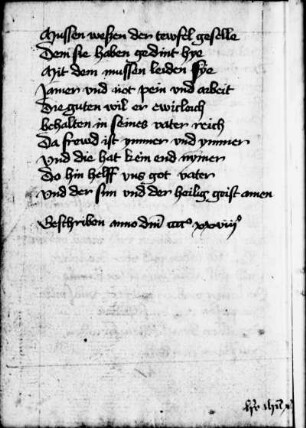 Mussen wesen der tewfel geselle
Dem sie haben gedint hye
Mit dem mussen leiden sye
Jamer vnd not pein und arbeit
Die guten wil er ewicleich
behalten in seines vater reich
Da frewd ist ymmer vnd ymmer
Vnd die hat kein end nymer
Do hin helff vns got vater
Vnd der sun vnd der heilig geist amen
Geschriben anno dm̅ cccc° xxviij°